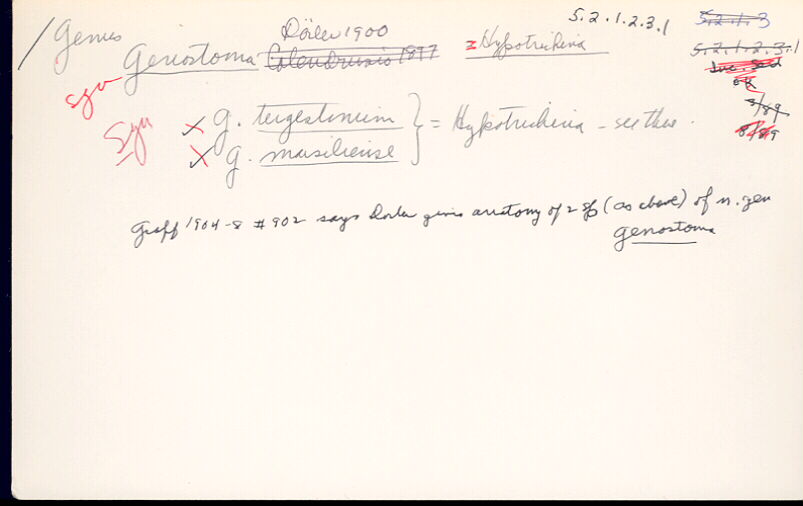 5.2.1.2.3.1 5.2.1.3
/ Genus Dörler 1900
Genostoma Calandruccio 1897 = Hypotrichina 5.2.1.2.3.1
syn Inc. Sed
OK
8/89
Syn × G. tergestinum } = Hypotrichina - see this. 8/89
× G. marsiliense
Graff 1904-8 #902 says Dorler gives anatomy of 2 sp (as above) of n. gen
Genostoma